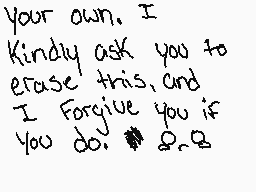 your own. I
Kindly ask you to
erase this, and
I Forgive you if
You do.